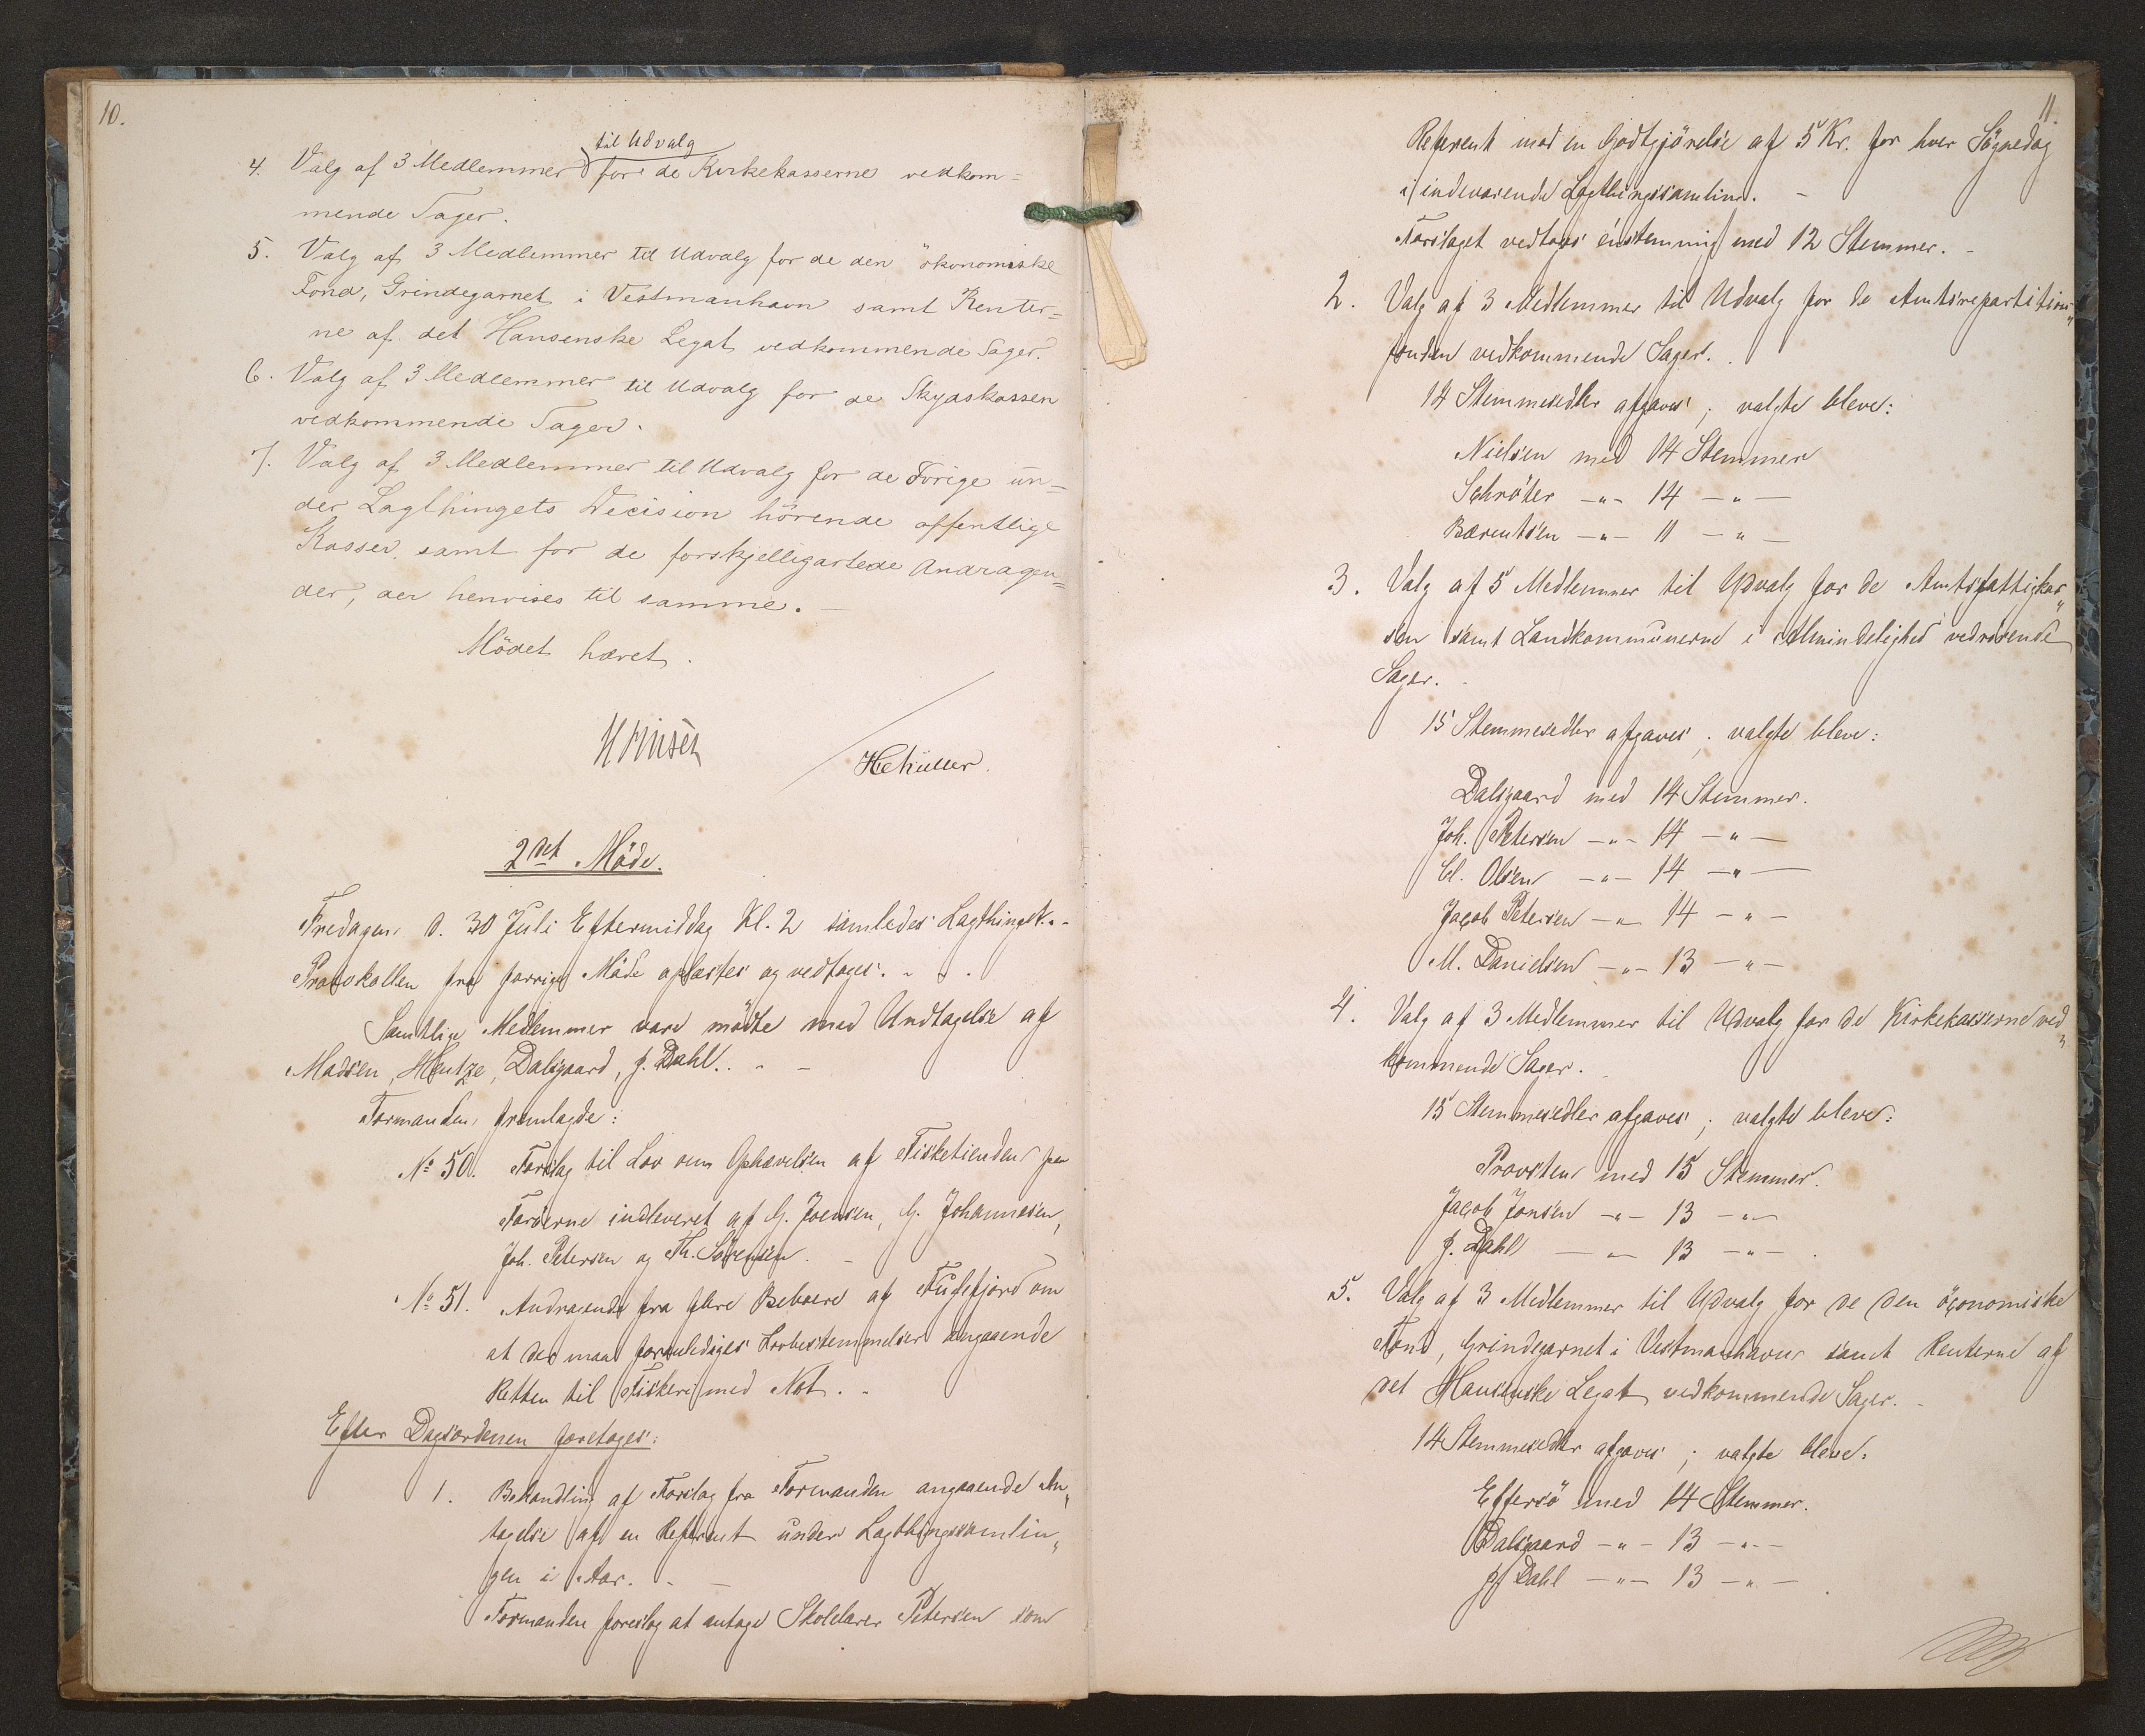 10.
4. Valg af 3 Medlemmer til Udvalg for de Kirkekasserne vedkom=
mende Sager.
5. Valg af 3 Medlemmer til Udvalg for de den økonomiske
Fond, Grindegarnet i Vestmanhavn samt Renter=
ne af det Hansenske Legat vedkommende Sager.
6. Valg af 3 Medlemmer til Udvalg for de Skydskassen
vedkommende Sager.
7. Valg af 3 Medlemmer til Udvalg for de Övrige un=
der Lagthingets Decision hörende offentlige
Kasser, samt for de forskjelligartede Andragen=
der, der henvises til samme. —
Mödet hævet.
2det Möde.
Fredagen d. 30 Juli Eftermiddag Kl. 2 samledes Lagthinget. -
Protokollen fra forrige Möde oplæstes og vedtoges. - - .
Samtlige Medlemmer vare mödte med Undtagelse af
Madsen, Hentze, Dalsgaard, J. Dahl. . - -
Formanden fremlagde:
No 50. Forslag til Lov om Ophævelsen af Fisketienden paa
Færöerne indleveret af G. Joensen, G. Johannesen,
Joh. Petersen og Th. Sörensen. -
No 51. Andragende fra flere Beboere af Fuglefjord om
at der maa foranlediges Lovbestemmelser angaaende
Retten til Fiskeri med Not. -
Efter Dagsordenen foretoges:
1. Behandling af Forslag fra Formanden angaaende An„
tagelse af en Referent under Lagthingssamlin„
gen i Aar. - —
Formanden foreslog at antage Skolelærer Petersen som
11.
Referent med en Godtgjörelse af 5 Kr. for hver Sögnedag
i indeværende Lagthingssamling. -
Forslaget vedtoges enstemmig med 12 Stemmer. -
2. Valg af 3 Medlemmer til Udvalg for de Amtsrepartitions„
fonden vedkommende Sager. .
14 Stemmesedler afgaves; valgte bleve:
Nielsen med 14 Stemmer
Schröter -"- 14 -"-
Bærentsen -"- 11 -"-
3. Valg af 5 Medlemmer til Udvalg for de Amtsfattigkas„
sen samt Landkommunerne i Almindelighed vedrörende
Sager.
15 Stemmesedler afgaves; valgte bleve:
Dalsgaard med 14 Stemmer.
Joh. Petersen -"- 14 -"-
Cl. Olsen -"- 14 -"-
Jacob Petersen -"- 14 -"-
M. Danielsen -"- 13 -"-
4. Valg af 3 Medlemmer til Udvalg for de Kirkekasserne ved„
kommende Sager.
15 Stemmesedler afgaves; valgte bleve:
Provsten med 15 Stemmer.
Jacob Jonsen -"- 13 -"-
J. Dahl -"- 13 -"- .
5. Valg af 3 Medlemmer til Udvalg for de den öconomiske
Fond, Grindegarnet i Vestmanhavn samt Renterne af
det Hansenske Legat vedkommende Sager. -
14 Stemmesedler afgaves; valgte bleve:
Effersö med 14 Stemmer.
Dalsgaard -"- 13 -"-
J. Dahl -"- 13 -"- .